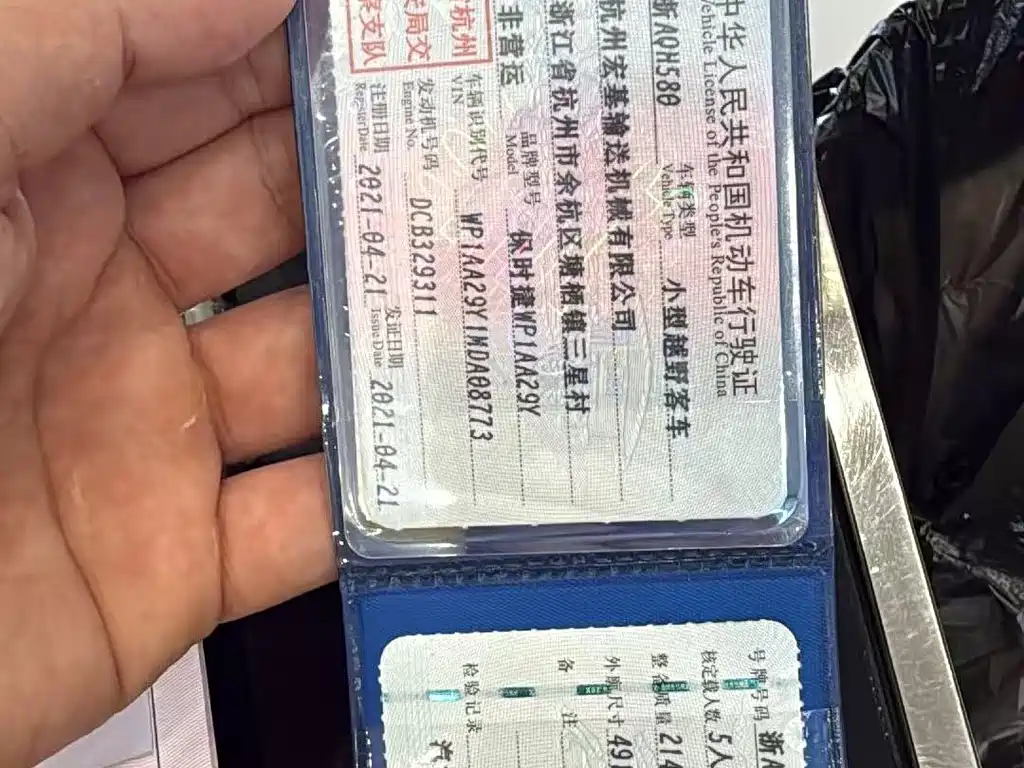 中华人民共和国机动车行驶证
Vehicle License of the People's Republic of China
浙AQH580 车辆类型 小型越野客车
Vehicle Type
杭州宏基输送机械有限公司
浙江省杭州市余杭区塘栖镇三星村
非营运 品牌型号 保时捷WP1AA29Y
Model
车辆识别代号 WP1AA29Y1MDA08773
VIN
发动机号码 DCB329311
Engine No.
注册日期 2021-04-21 发证日期 2021-04-21
Register Date Issue Date
杭州
局交
支队
号牌号码 浙A
核定载人数 5人
整备质量 214
外廓尺寸 491
备 注
检验记录